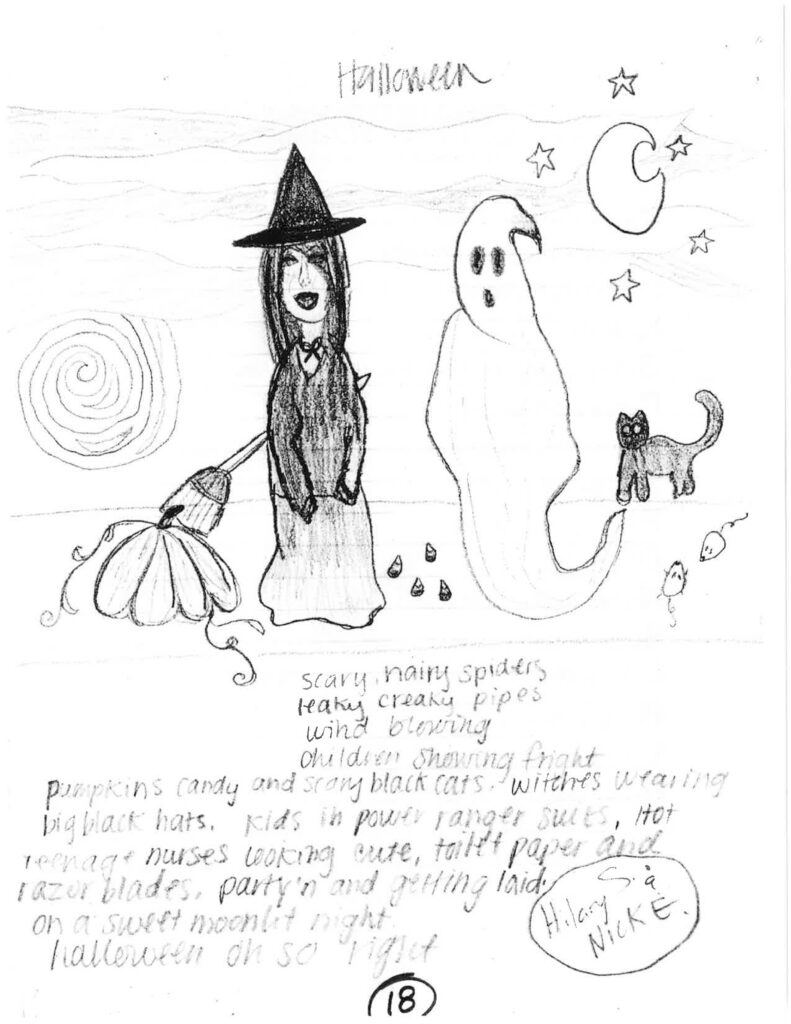 Halloween
scary, hairy spiders
leaky creaky pipes
wind blowing
children showing fright
pumpkins candy and scary black cats. witches wearing
big black hats. kids in power ranger suits, Hot
teenage nurses looking cute, toilet paper and
razor blades. party'n and getting laid.
on a sweet moonlit night.
halloween oh so right
Hilary S. &
NICK E.
18